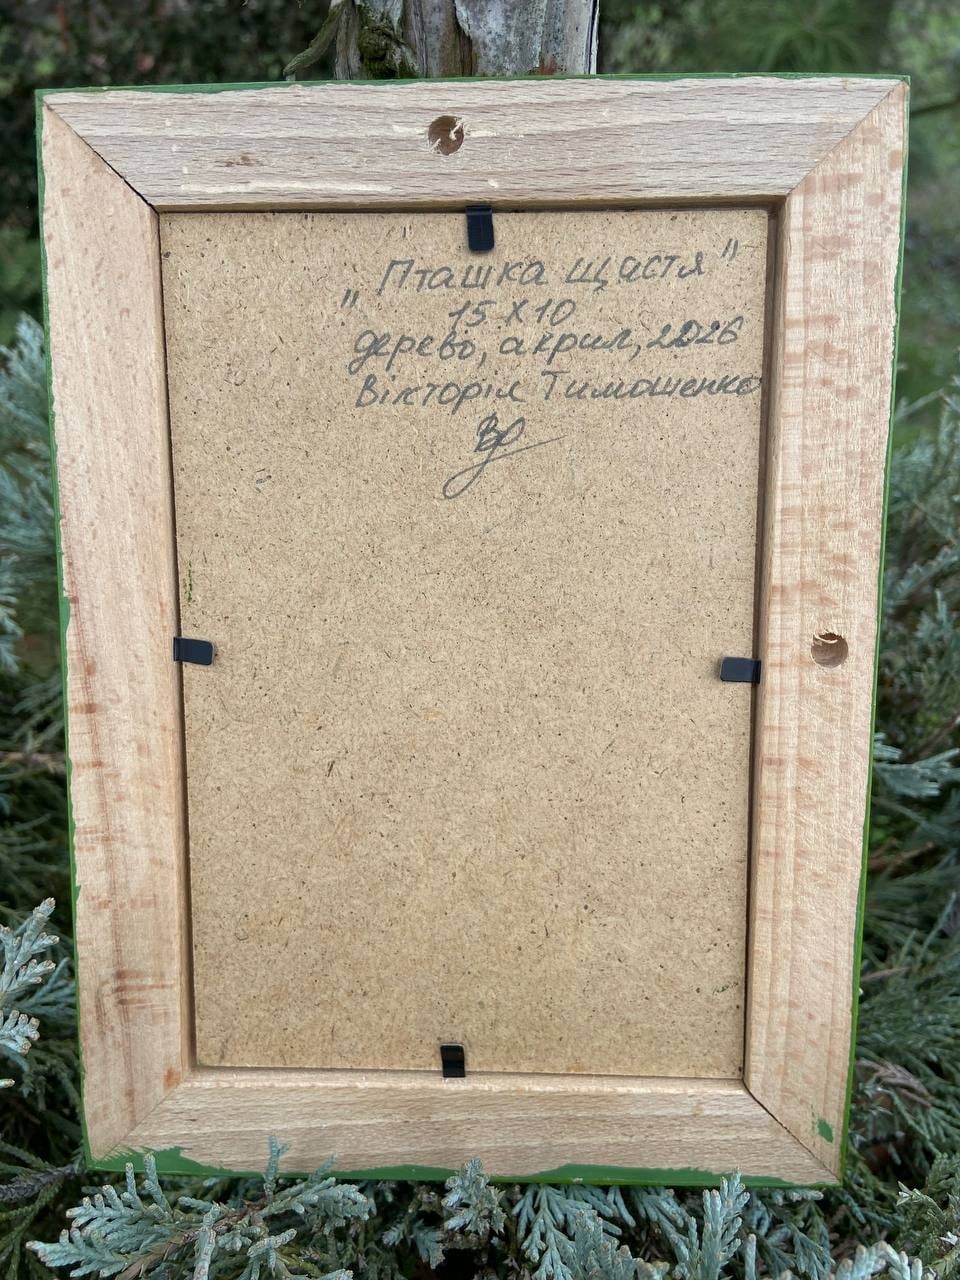 „Пташка щастя"
15 X 10
дерево, акрил, 2026
Вікторія Тимошенко